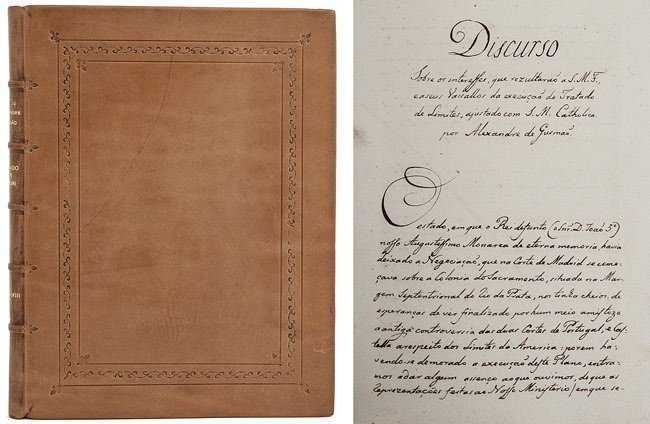 Discurso
Sobre os interesses, que rezultaraõ a S. M. F.
e a seus Vassallos da execuçaõ do Tratado
de Limites, ajustado com S. M. Catholica.
por Alexandre de Gusmaõ
O estado, em que o Rei defunto (o Snr. D. Joaõ 5.º)
nosso Augustissimo Monarca de eterna memoria havia
deixado a Negociaçaõ, que na Corte de Madrid se come-
çava sobre a Colonia do Sacramento, situada na Mar-
gem Septentrional do Rio da Prata, nos tinha cheios, de
esperanças de ver finalizado por hum meio amistozo
a antiga controversia das duas Cortes de Portugal, e Cas-
tella a respeito dos Limites da America: porem ha-
vendo-se demorado a execuçaõ deste Plano, entra-
mos a dar algum assenço ao que ouvimos, de que as
Reprezentações feitas ao Nosso Ministerio (em que se-